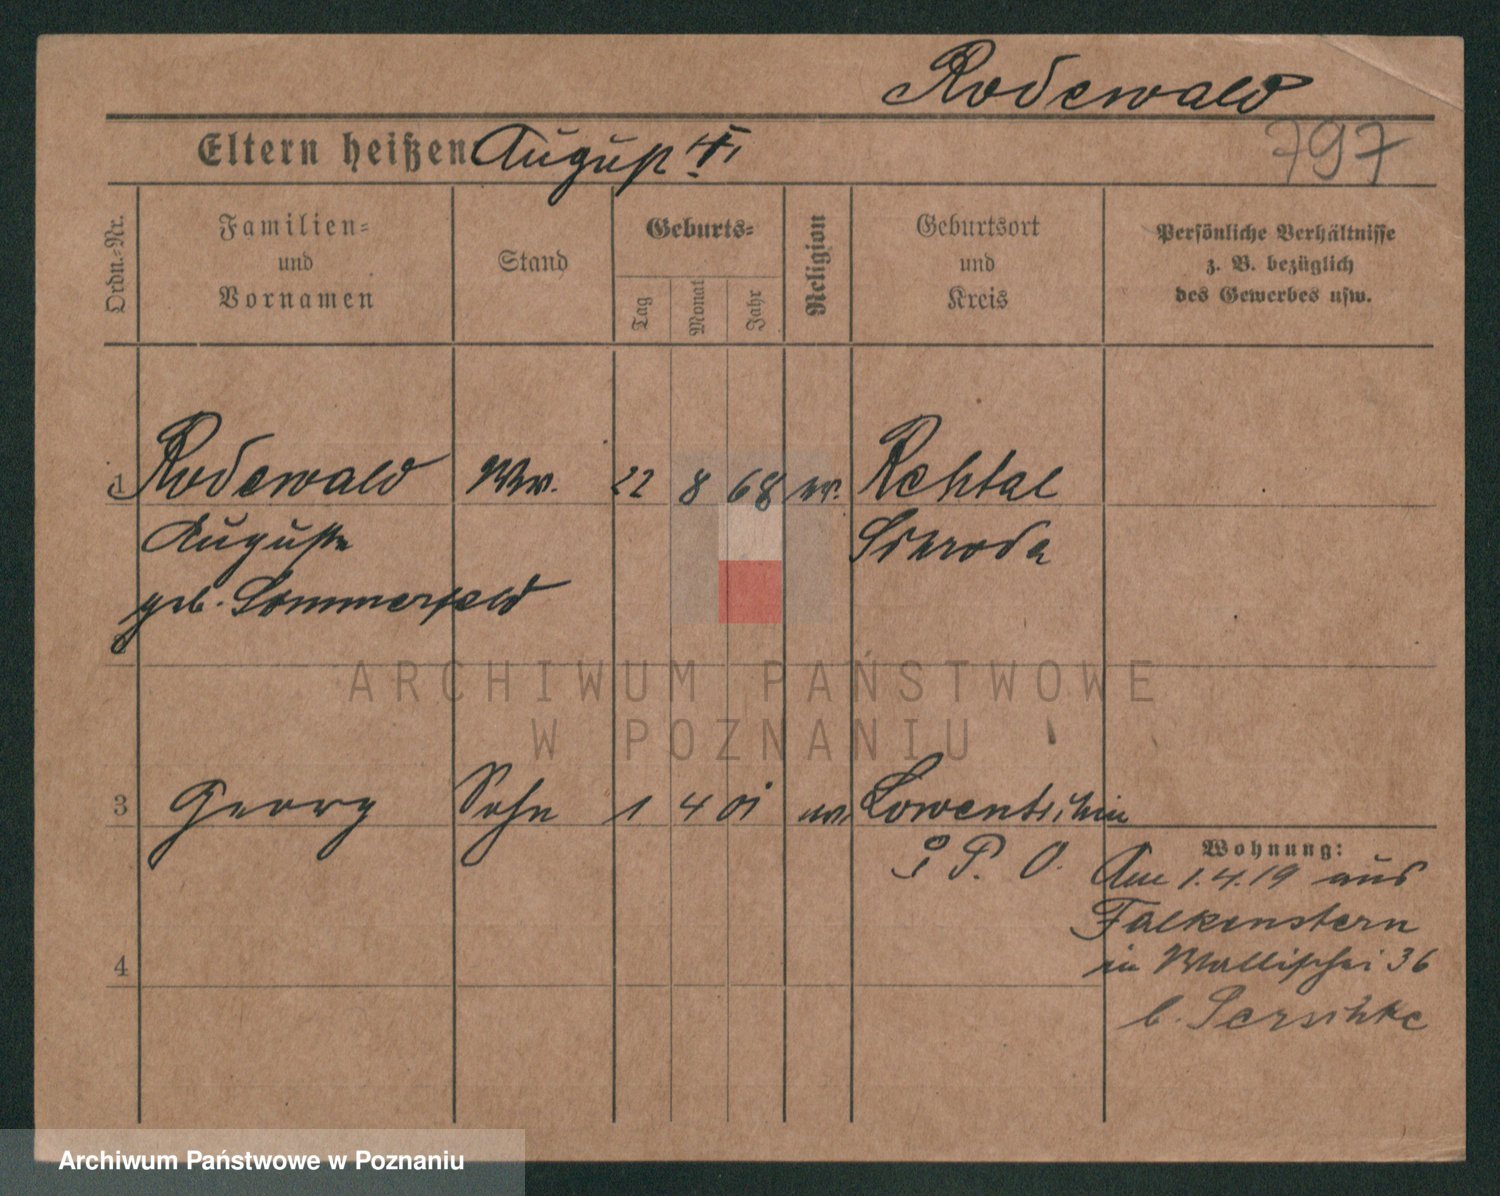 Rodewald
Eltern heißen August
797
Ordn.-Nr.
Familien-
und
Vornamen
Stand
Geburts-
Tag
Monat
Jahr
Religion
Geburtsort
und
Kreis
Persönliche Verhältnisse
z. B. bezüglich
des Gewerbes usw.
1 Rodewald Ww. 22 8 68 ev. Rehtal
Auguste Schroda
geb. Sommerfeld
ARCHIWUM PAŃSTWOWE
W POZNANIU
3 Georg Sohn 1 4 01 ev. Lowentschin
i P. O.
Wohnung:
Am 1.4.19 aus
Falkenstern
in Wallischei 36
b. Perschke
4
Archiwum Państwowe w Poznaniu